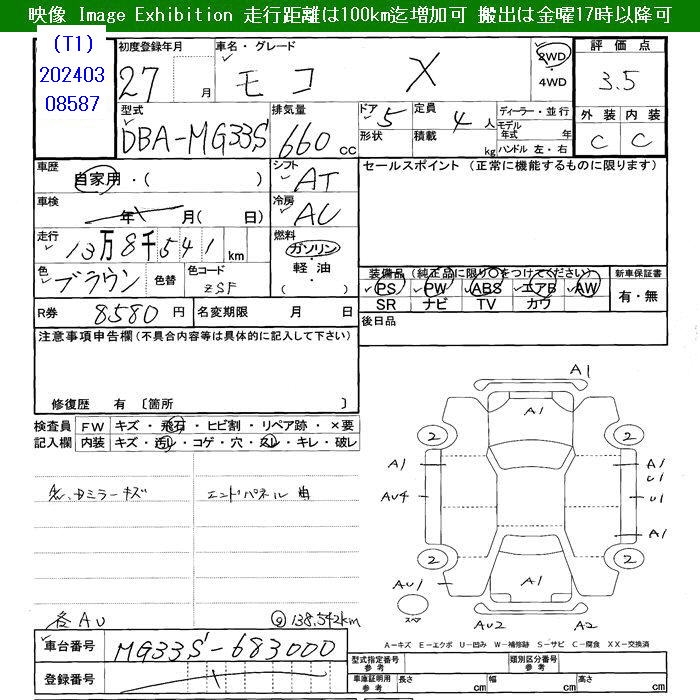 映像 Image Exhibition 走行距離は100km迄増加可 搬出は金曜17時以降可
(T1)
202403
08587
初度登録年月
27 月
車名・グレード
モコ X
2WD
・
4WD
評価点
3.5
型式
DBA-MG33S
排気量
660 cc
ドア 5
形状
定員 4 人
積載 kg
ディーラー・並行
モデル年式 年
ハンドル 左・右
外装 内装
C C
車歴
自家用・( )
シフト
AT
セールスポイント (正常に機能するものに限ります)
車検
年 月( 日)
冷房
AC
走行
13万8千541 km
燃料
ガソリン・
軽油・
( )
色
ブラウン
色替
色コード
ZSF
装備品(純正品に限り○をつけてください)
新車保証書
PS PW ABS エアB AW
有・無
SR ナビ TV カワ
R券 8580 円
名変期限 月 日
後日品
注意事項申告欄(不具合内容等は具体的に記入して下さい)
修復歴 有 〔箇所 〕
検査員 FW キズ・飛石・ヒビ割・リペア跡・×要
記入欄 内装 キズ・汚レ・コゲ・穴・スレ・キレ・破レ
ミラーキズ
エンドパネル 曲
A1
A1
2 2
A1 A1
U1
AU4 U1
A1
2 2
AU1 A1
スペア
AU2 A2
各AU
138,542km
A=キズ E=エクボ U=凹み W=補修跡 S=サビ C=腐食 XX=交換済
車台番号 MG33S-683000
登録番号
型式指定番号
参考
類別区分番号
参考
車庫証明用
参考
長さ cm
幅 cm
高さ cm